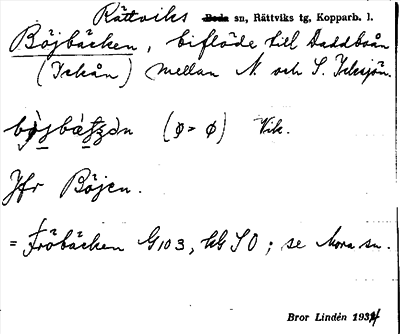 Rättviks ~~Boda~~ sn, Rättviks tg, Kopparb. l.
Böjbäcken, biflöde till Daddboån
(Ickån) mellan N. och S. Icksjön.
(ø = ø) Vik.
Jfr Böjen.
= Fröbäcken G103, kbl SO; se Mora sn.
Bror Lindén 1934